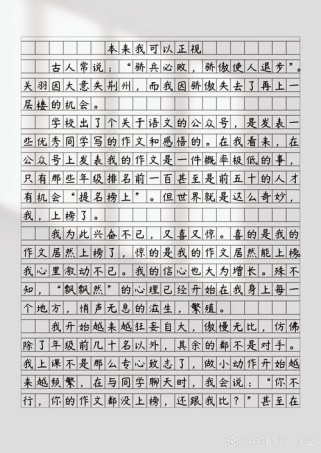 本来我可以正视
古人常说：“骄兵必败，骄傲使人退步”。
关羽因大意失荆州，而我因骄傲失去了再上一
层楼的机会。
学校出了个关于语文的公众号，是发表一
些优秀同学写的作文和感悟的。在我看来，在
公众号上发表我的作文是一件概率极低的事，
只有那些年级排名前一百甚至是前五十的人才
有机会“提名榜上”。但世界就是这么奇妙，
我，上榜了。
我为此兴奋不已，又喜又惊。喜的是我的
作文居然上榜了，惊的是我的作文居然能上榜。
我心里激动不已。我的信心也大为增长。殊不
知，“飘飘然”的心理已经开始在我身上每一
个地方，悄声无息的滋生，繁殖。
我开始越来越狂妄自大，傲慢无比，仿佛
除了年级前几十名以外，其余的都不是对手。
我上课不是那么专心致志了，做小动作开始越
来越频繁，在与同学聊天时，我会说：“你不
行，你的作文都没上榜，还跟我比？”甚至在